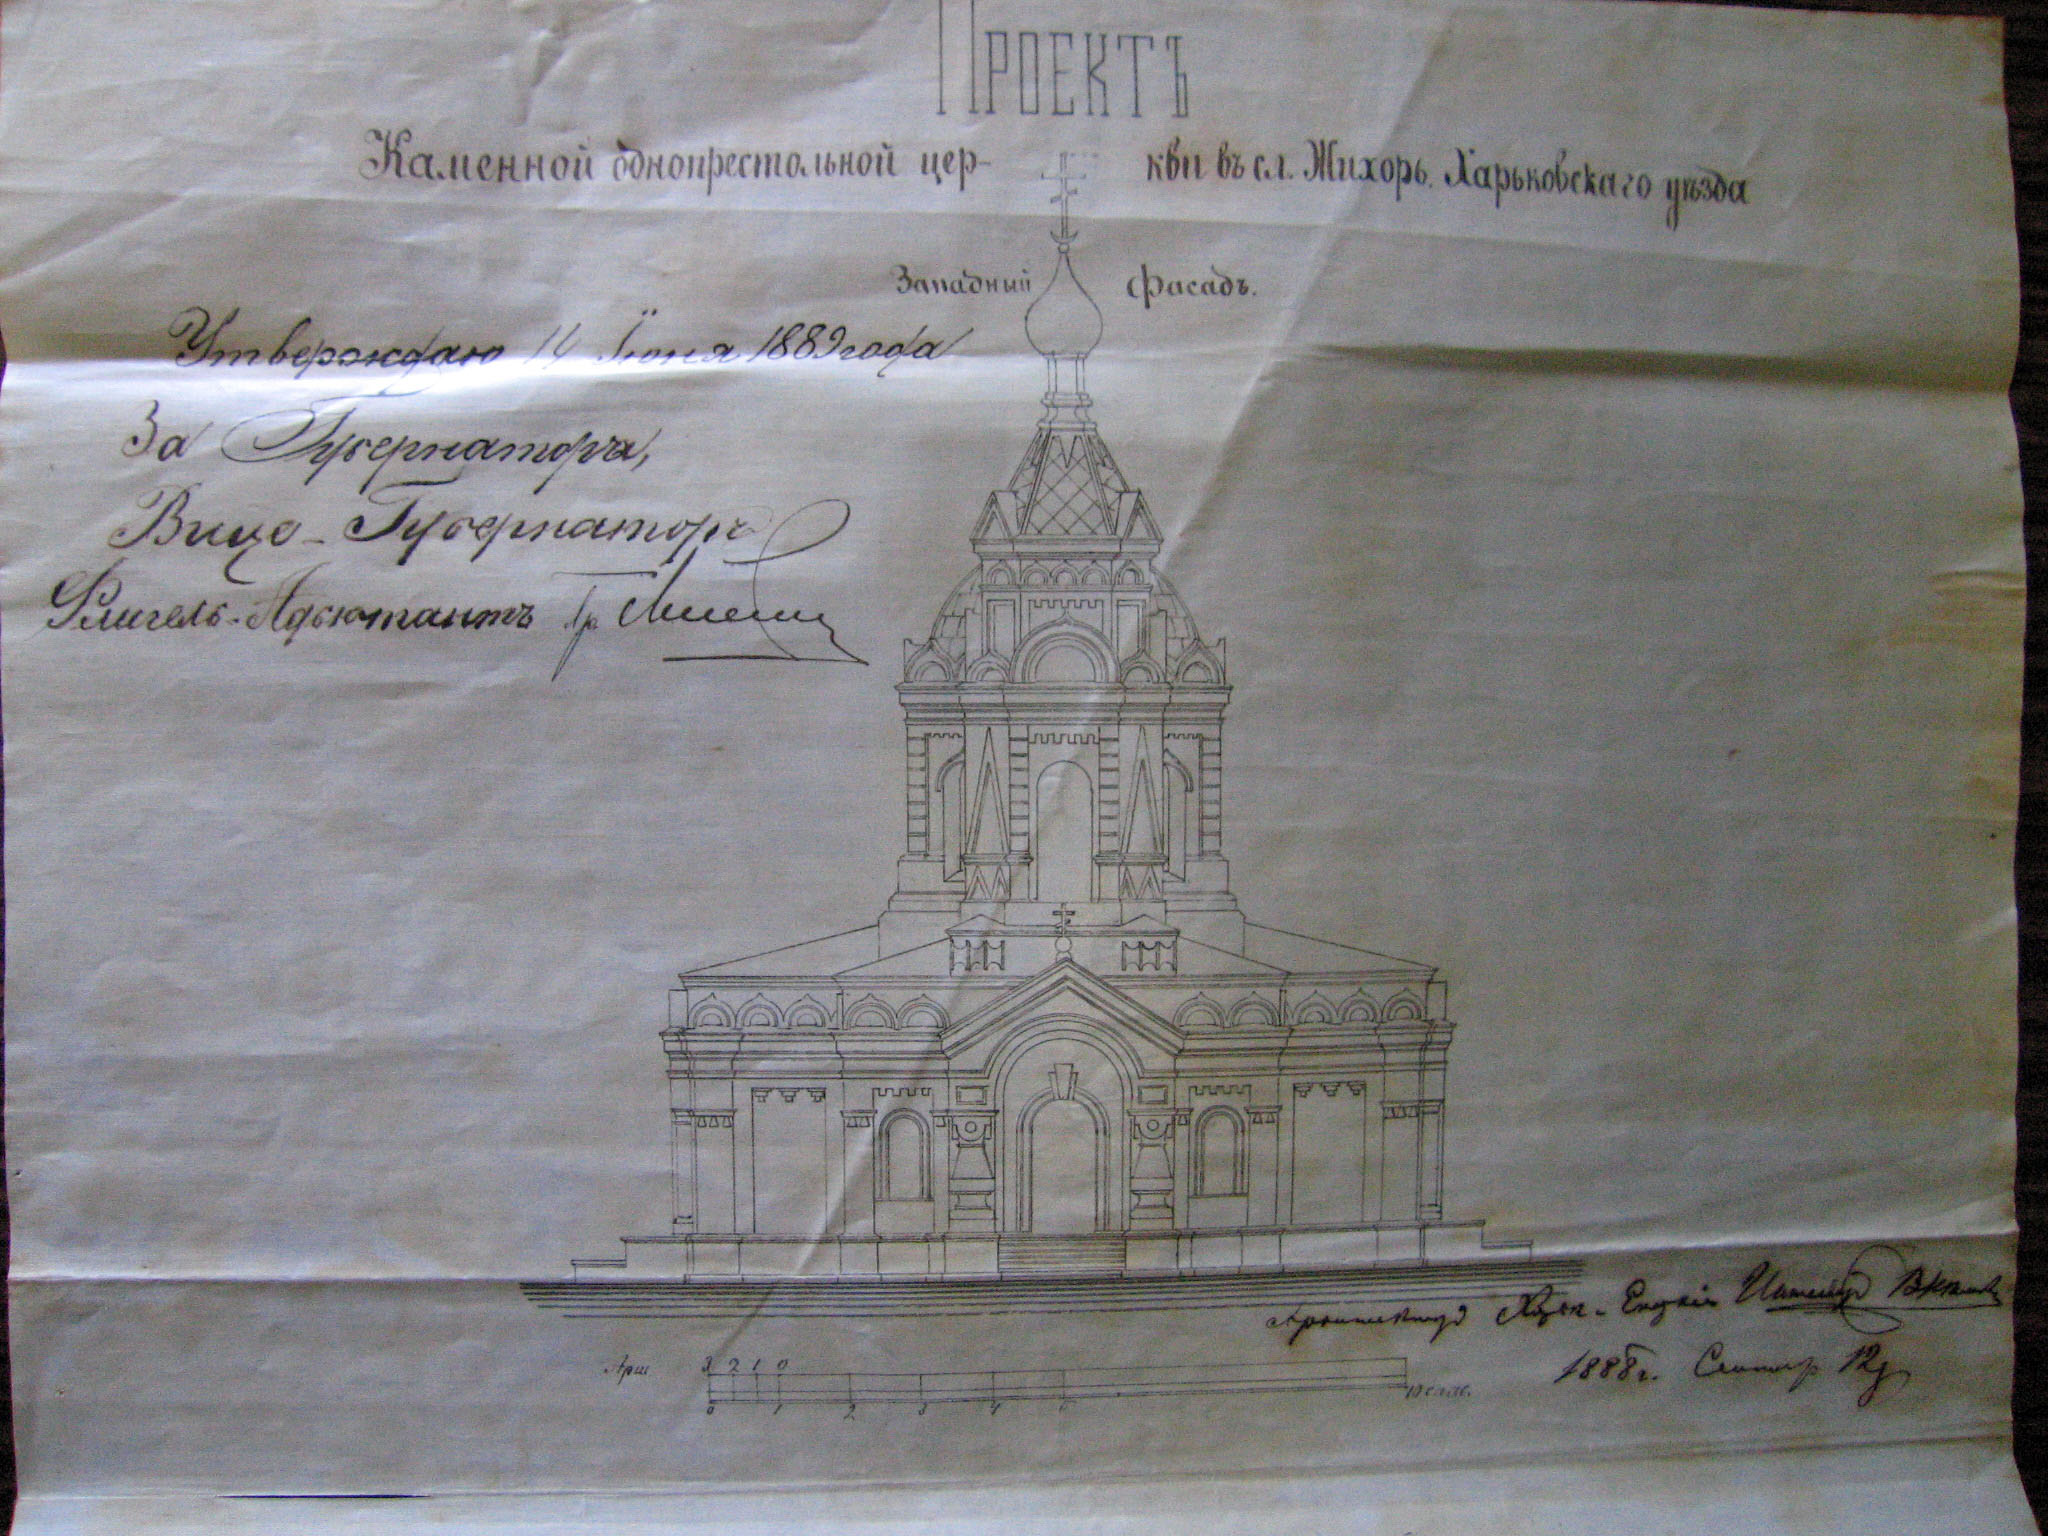 Проектъ
Каменной однопрестольной цер- кви въ сл. Жихорь. Харьковскаго уѣзда
Западный Фасадъ.
Утверждаю 14 Іюня 1889 года
За Губернатора,
Вице-Губернаторъ
Флигель-Адъютантъ Гр.
Архитекторъ Харьк.
1888 г. Сентяб 12 д
Арш 3 2 1 0
10 саж.
0 1 2 3 4 5